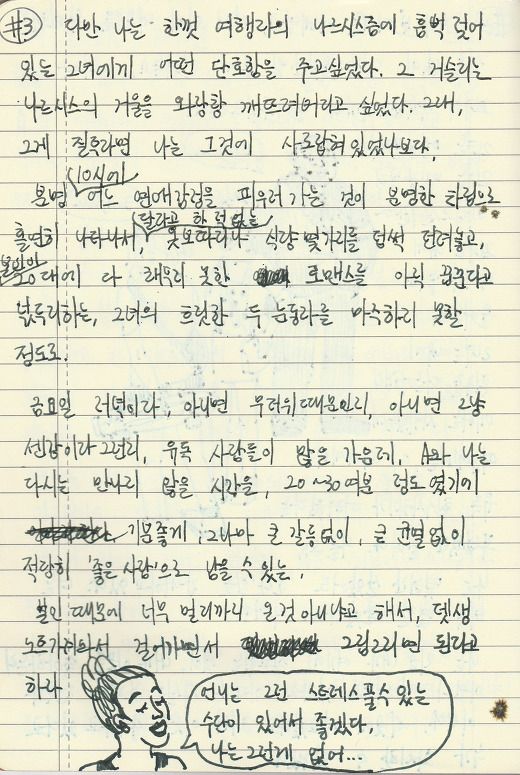 #3 다만 나는 한껏 여행자의 나르시스즘에 흠뻑 젖어
있는 그녀에게 어떤 단호함을 주고싶었다. 그 거슬리는
나르시스의 거울을 와장창 깨뜨려버리고 싶었다. 그래,
그게 질투라면 나는 그것에 사로잡혀 있었나보다.
10시에
분명 어느 연애감정을 피우러 가는 것이 분명한 타림으로
달라고 한 적 없는
홀연히 나타나서, 옷보따리나 식량 몇가지를 덥썩 던져놓고,
20대에 다 채우지 못한 로맨스를 아직 꿈꾼다고
넋두리하는, 그녀의 또릿한 두 눈동자를 마주하지 못할
정도로.
금요일 저녁이라, 아니면 무더위때문인지, 아니면 그냥
센강이라 그런지, 유독 사람들이 많은 가운데, A와 나는
다시는 만나지 않을 시간을, 20~30여분 정도 였기에
기분좋게, 그나마 큰 갈등없이, 큰 균열없이
적당히 '좋은 사람'으로 남을 수 있는,
본인 때문에 너무 멀리까지 온것 아니냐고 해서, 뎃생
노트가져와서 걸어가면서 그림그리면 된다고
하자
언니는 그런 스트레스 풀수 있는
수단이 있어서 좋겠다,
나는 그런게 없어...